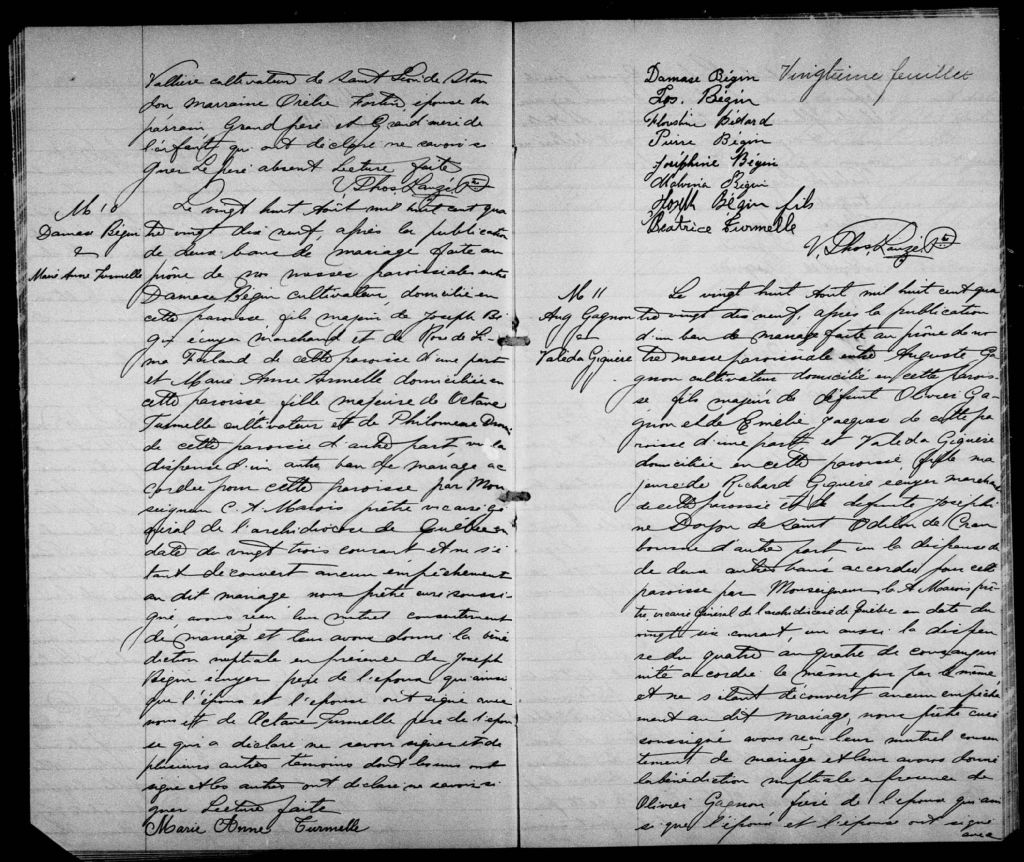 Vallière cultivateur de Saint Léon de Stan
don marraine Orélie Fortin, épouse du
parrain Grand père et Grand mère de
l'enfant qui ont déclaré ne savoir si
gner Le père absent Lecture faite
V. Phos. Lauzé Ptre
M 10
Damase Bégin
&
Marie Anne Turmelle
Le vingt huit Août mil huit cent qua
tre vingt dix neuf après la publication
de deux bans de mariage faite au
prône de nos messes paroissiales entre
Damase Bégin cultivateur, domicilié en
cette paroisse fils majeur de Joseph Bé
gin écuyer marchand et de Rose de Li
ma Ferland de cette paroisse d'une part
et Marie Anne Turmelle domiciliée en
cette paroisse fille majeure de Octave
Turmelle cultivateur et de Philomène
de cette paroisse d'autre part vu la
dispense d'un autre ban de mariage ac
cordée pour cette paroisse par Mon
seigneur C. A. Marois prêtre vicaire gé
néral de l'archidiocèse de Québec en
date du vingt trois courant et ne s'é
tant découvert aucun empêchement
au dit mariage nous prêtre curé soussi
gné avons reçu leur mutuel consentement
de mariage et leur avons donné la béné
diction nuptiale en présence de Joseph
Bégin écuyer père de l'époux qui ainsi
que l'époux et l'épouse ont signé avec
nous et de Octave Turmelle père de l'épou
se qui a déclaré ne savoir signer et de
plusieurs autres témoins dont les uns ont
signé et les autres ont déclaré ne savoir si
gner Lecture faite
Marie Anne Turmelle
Vingtième feuillet
Damase Bégin
Jos. Bégin
Florstine Bédard
Pierre Bégin
Joséphine Bégin
Malvina Bégin
Joseph Bégin fils
Béatrice Turmelle
V. Phos. Lauzé Ptre
M 11
Aug Gagnon
et
Valéda Giguère
Le vingt huit Aout mil huit cent qua
tre vingt dix neuf, après la publication
d'un ban de mariage faite au prône de no
tre messe paroissiale entre Auguste Ga
gnon cultivateur domicilié en cette parois
se fils majeur de défunt Olivier Ga
gnon et de Emélie Jacques de cette pa
roisse d'une part et Valéda Giguère
domiciliée en cette paroisse, fille ma
jeure de Richard Giguère écuyer marchand
de cette paroisse et de défunte Joséphi
ne Doyon de Saint Odilon de Cran
bourne d'autre part vu la dispense de
de deux autres bans accordée pour cette
paroisse par Monseigneur C. A Marois prê
tre vicaire Général de l'archidiocèse de Québec en date du
vingt six courant, vu aussi la dispen
se du quatre au quatre de consanguin
ité accordée le même jour par le même
et ne s'étant découvert aucun empêche
ment au dit mariage, nous prêtre curé
soussigné avons reçu leur mutuel consen
tement de mariage et leur avons donné
la bénédiction nuptiale en présence de
Olivier Gagnon frère de l'époux qui ain
si que l'époux et l'épouse ont signé
avec